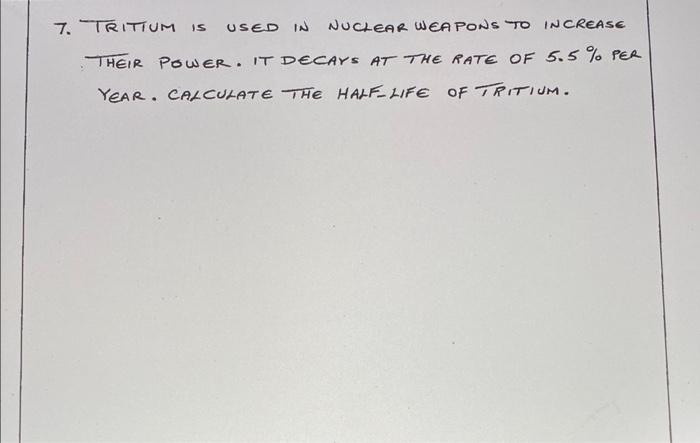 7. TRITIUM IS USED IN NUCLEAR WEAPONS TO INCREASE
THEIR POWER. IT DECAYS AT THE RATE OF 5.5% PER
YEAR. CALCULATE THE HALF-LIFE OF TRITIUM.